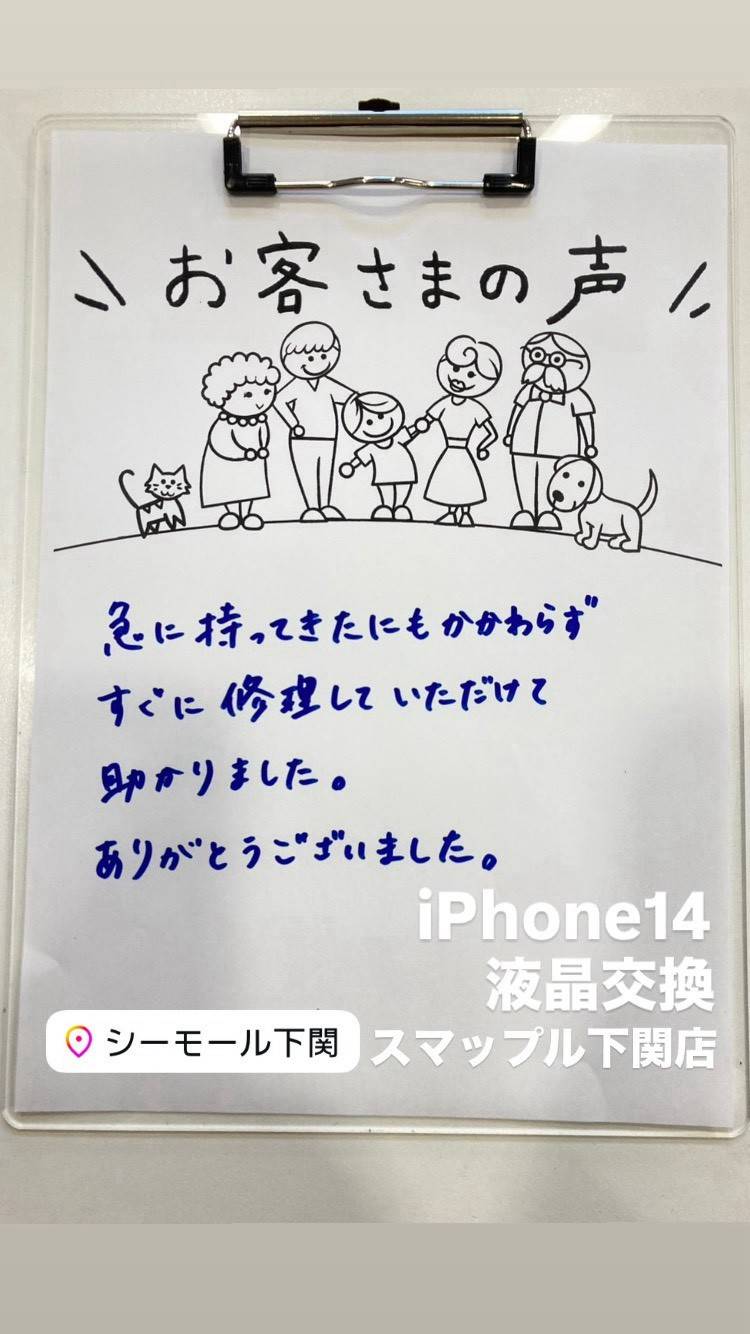 お客さまの声
急に持ってきたにもかかわらず
すぐに修理していただけて
助かりました。
ありがとうございました。
iPhone14
液晶交換
シーモール下関
スマップル下関店